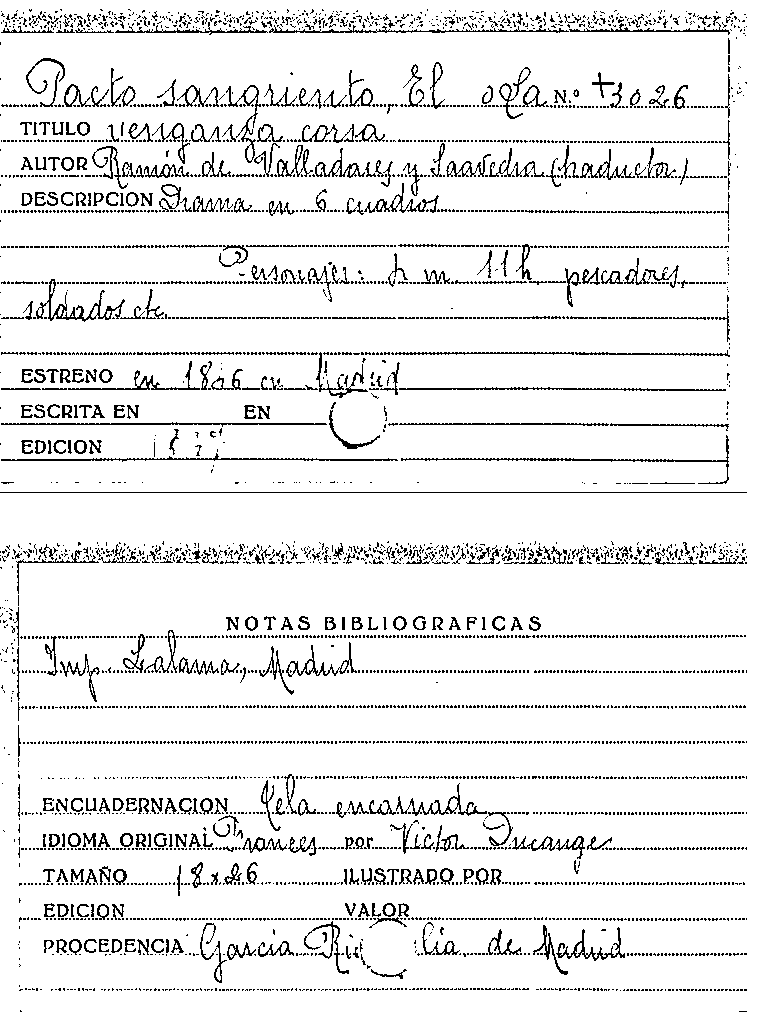 Pacto sangriento, El o La N.º +3026
TITULO venganza corsa
AUTOR Ramón de Valladares y Saavedra (traductor)
DESCRIPCION Drama en 6 cuadros
Personajes: m. 11 h. pescadores,
soldados etc.
ESTRENO en en Madrid
ESCRITA EN EN
EDICION
NOTAS BIBLIOGRAFICAS
Imp. Lalama, Madrid
ENCUADERNACION Tela encarnada
IDIOMA ORIGINAL Frances por Victor Ducange
TAMAÑO 18x26 ILUSTRADO POR
EDICION VALOR
PROCEDENCIA Garcia de Madrid